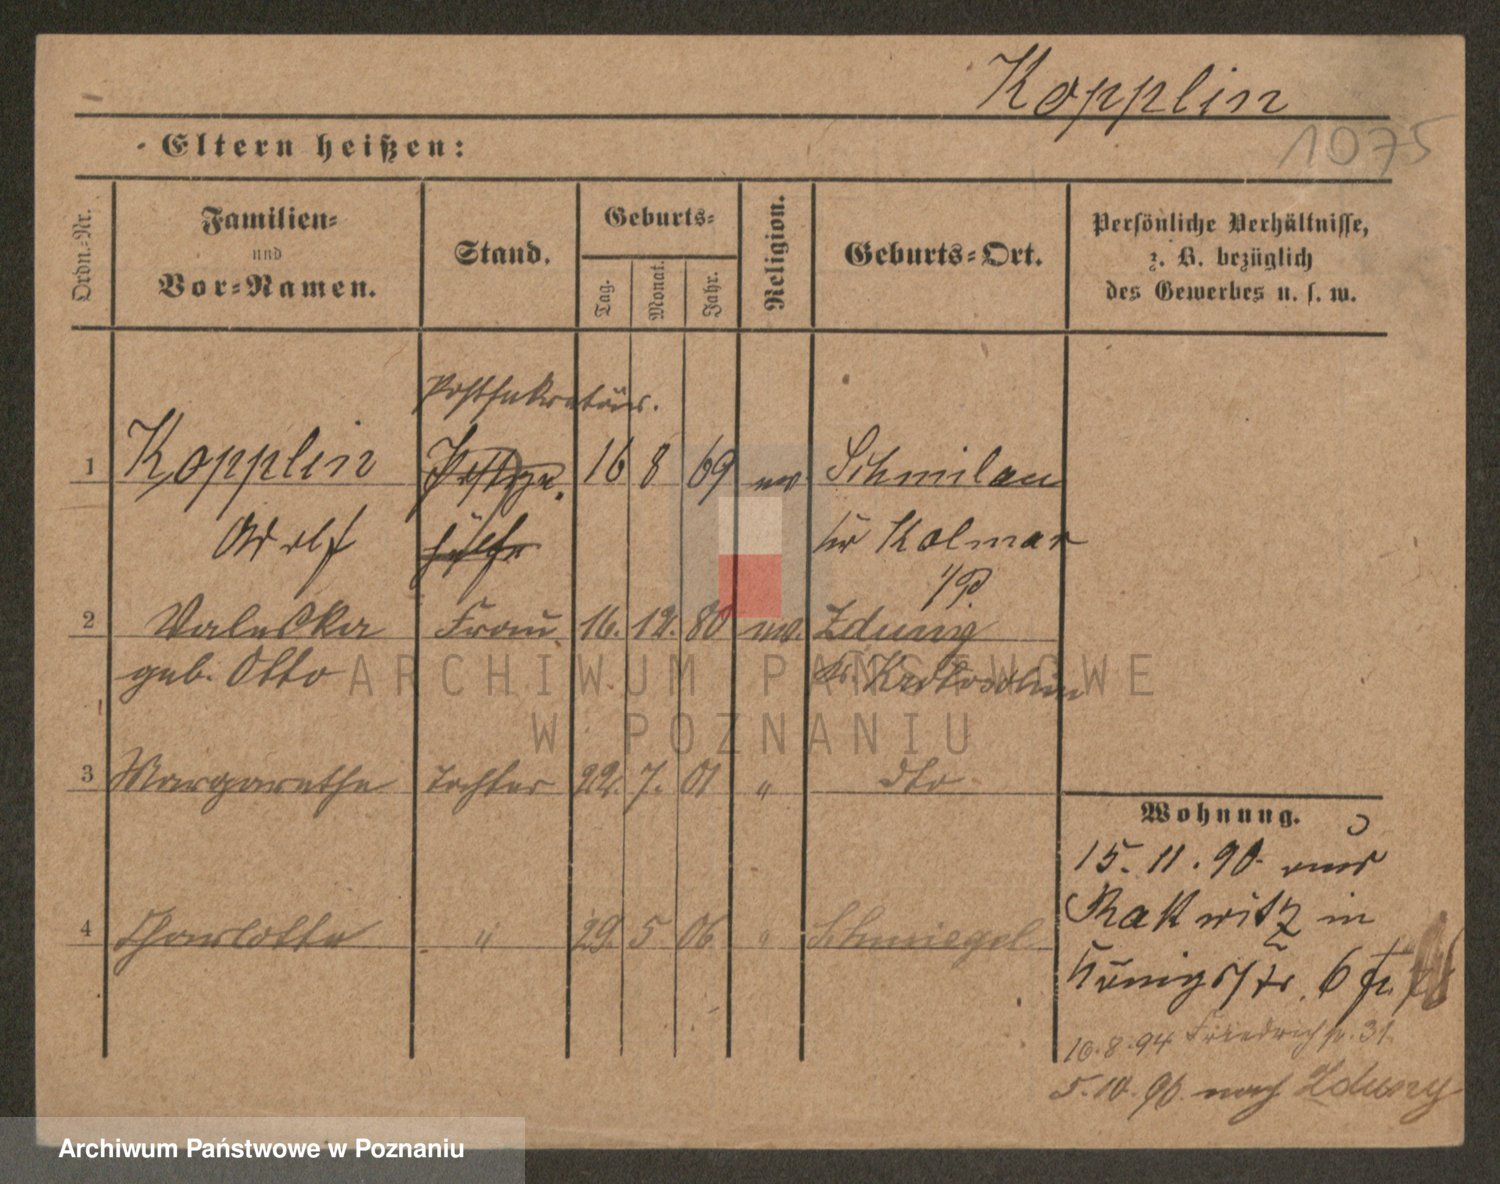 Kopplin
1075
Eltern heißen:
Ordn.=Nr.
Familien=
und
Vor=Namen.
Stand.
Geburts=
Tag.
Monat.
Jahr.
Religion.
Geburts=Ort.
Persönliche Verhältnisse,
z. B. bezüglich
des Gewerbes u. s. w.
Postsekretär.
1 Kopplin Postge. 16 8 69 ev. Schmilau
Adolf hülfe Kr Kolmar
i/P.
2 Valeska Frau 16. 12. 80 ev. Zduny
geb. Otto Kr. Krotoschin
3 Margarethe Tochter 22. 7. 01 " dto
4 Charlotte " 29. 5. 06 " Schmiegel
Wohnung.
15. 11. 90. aus
Rakwitz in
Königstr. 6
10.8.94 Friedrichstr. 31.
5.10.96. nach Zduny
ARCHIWUM PAŃSTWOWE
W POZNANIU
Archiwum Państwowe w Poznaniu